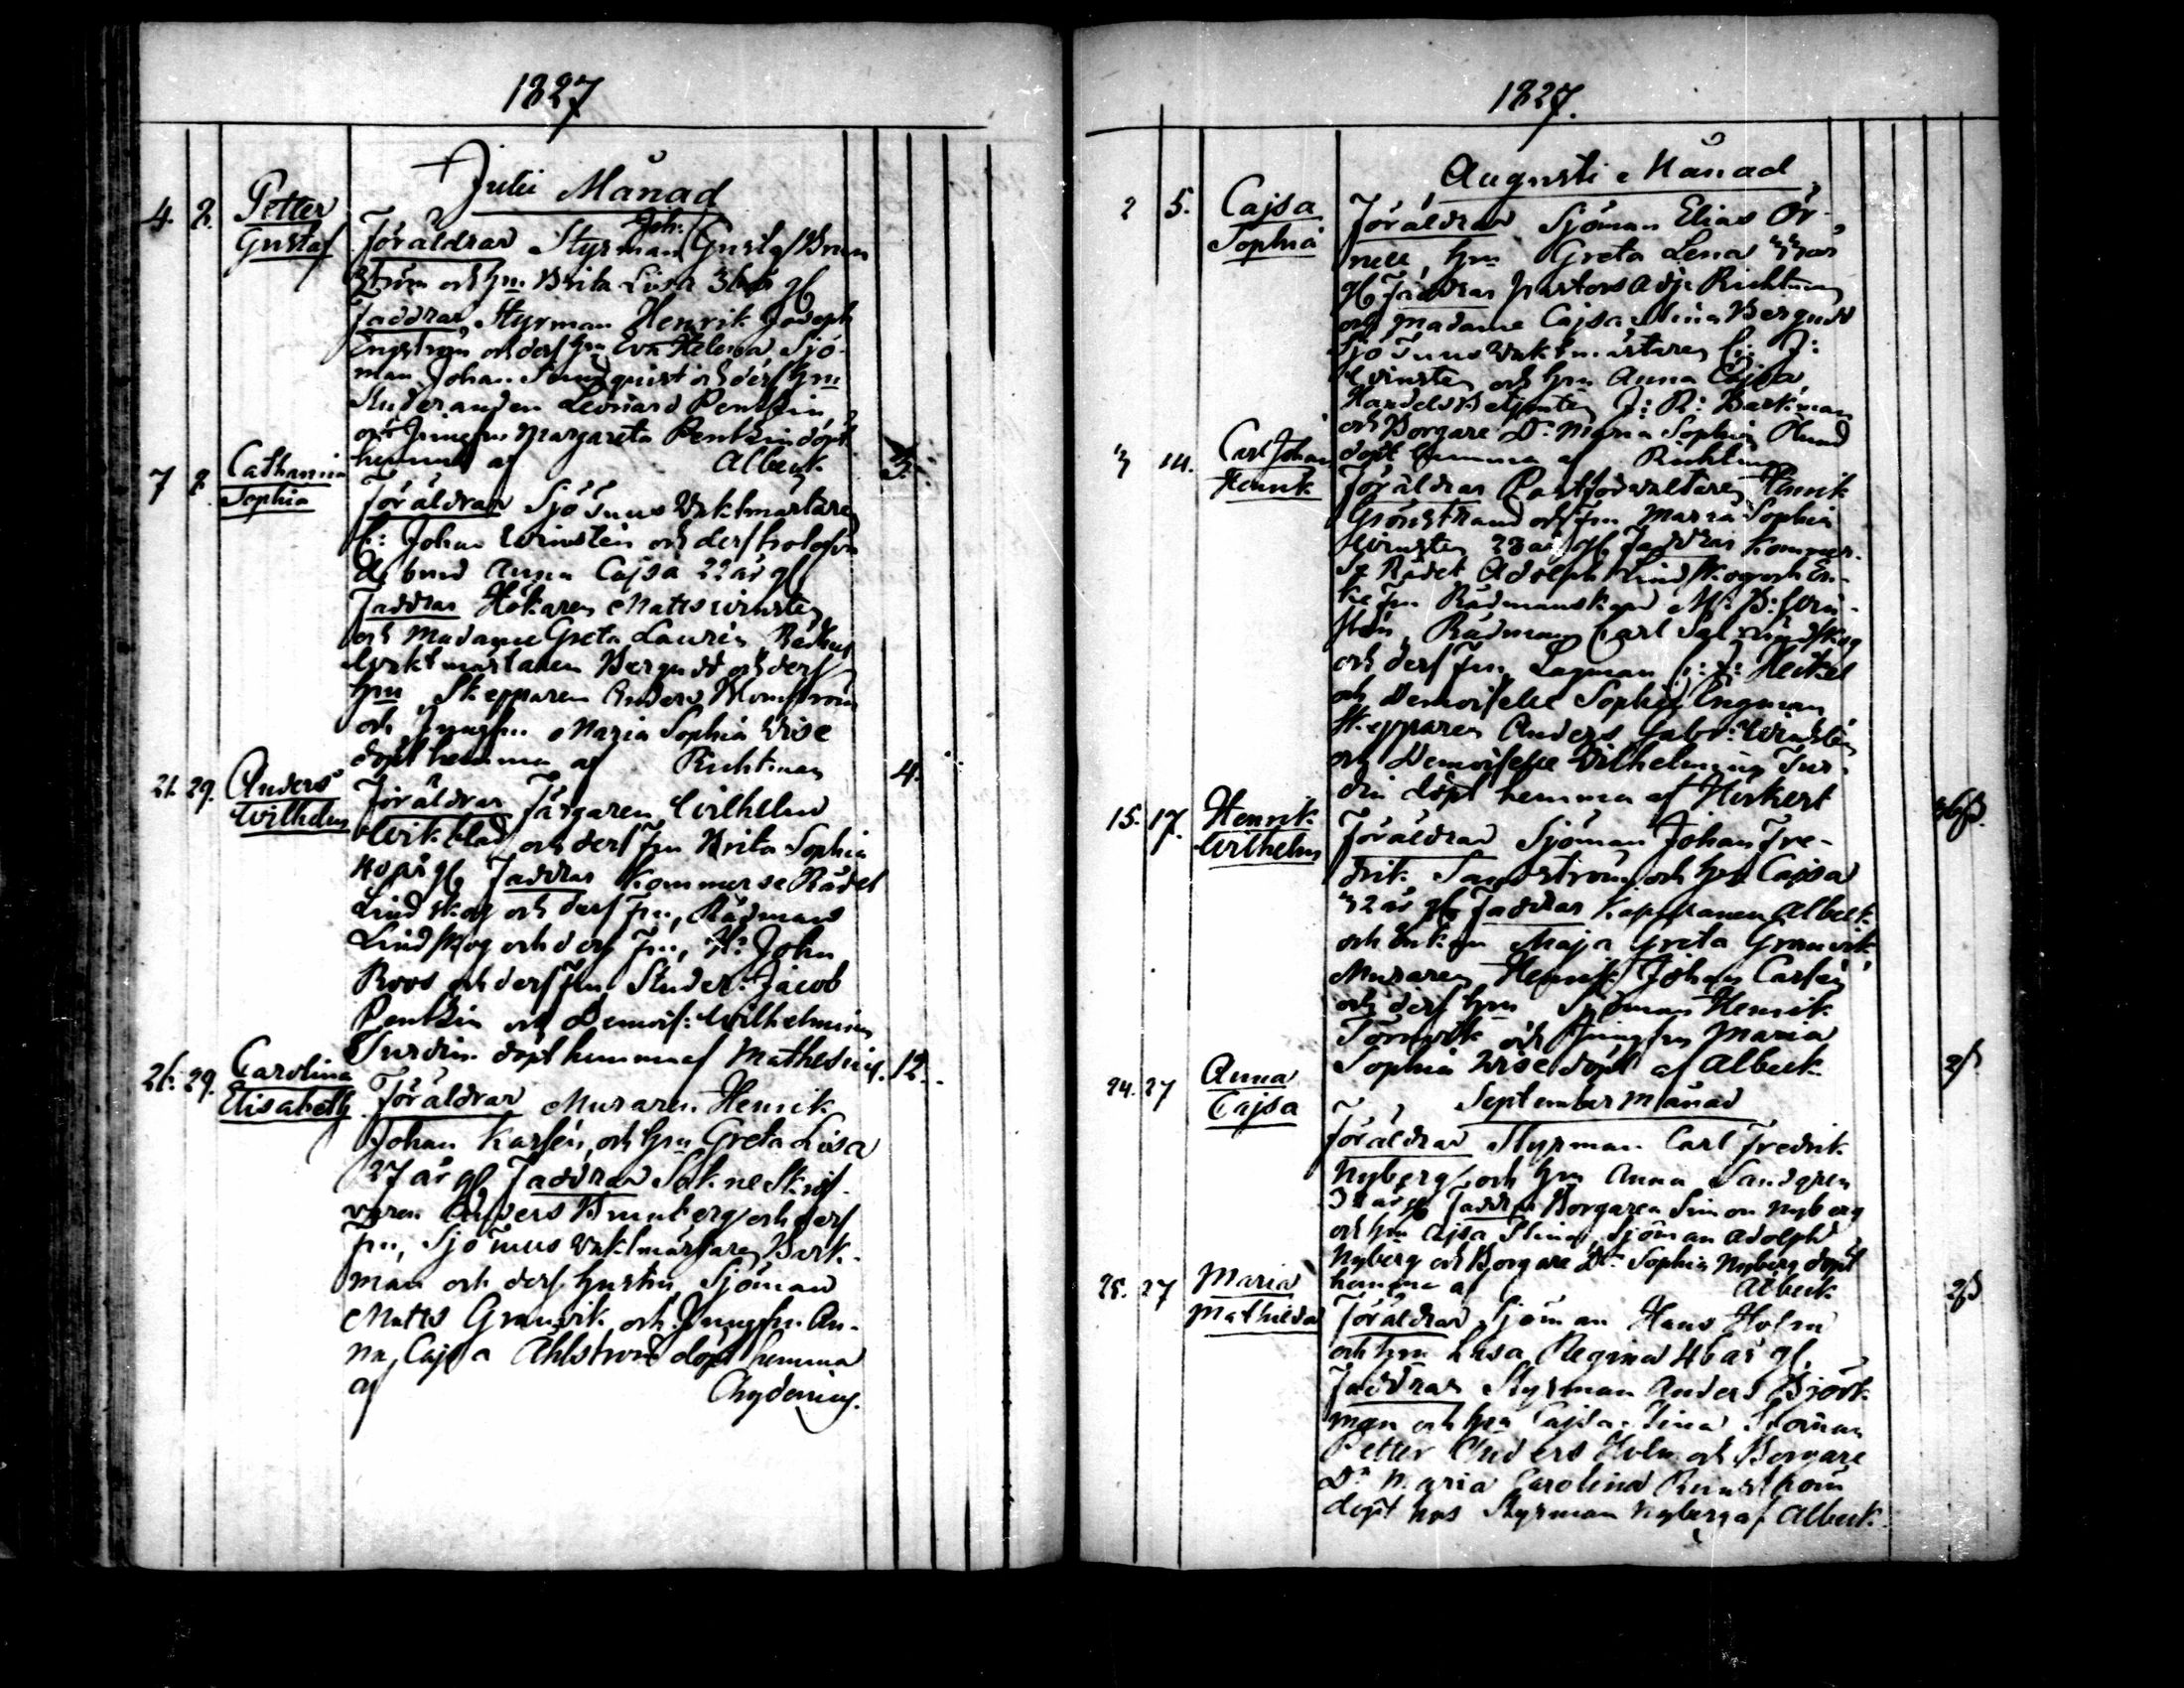 1827
Julii Månad
4. 8. Petter
Gustaf
Föräldrar Styrman Joh: Gustaf Brun
ström och hm Brita Lisa 36 år gl
Faddrar, Styrman Henrik Joseph
Engström och dess hm Eva Helena, Sjö-
man Johan Sundquist och dess hm
Studeranden Leonard Pentzin,
och Jungfru Margareta Pentzin döpt
hemma af Albeck
7 8 Catharina
Sophia
3.
Föräldrar Sjö Tuus Vaktmästaren
C: Johan Winsten och dess trolofva
de brud Anna Cajsa 22 år gl
Faddrar Hökaren Matts Winsten
och Madame Greta Laurin Rådhus
Vaktmästaren Bergudd och dess
hm, Skepparen Anders Blomström
och Jungfru Maria Sophia Wise
döpt hemma af Richtman
21. 29. Anders
Wilhelm
4.
Föräldrar Färgaren Wilhelm
Wikblad och dess Fru Brita Sophia
40 år gl Faddrar Kommerse Rådet
Lindskog och dess Fru, Rådmans
Lindskog och dess Fru, H: John
Roos och dess Fru Studer: Jacob
Pentzin och Demois: Wilhelmina
Turdin döpt hemma af Mathesius.
26. 29. Carolina
Elisabeth
12.
Föräldrar Muraren Henrik
Johan Karlén, och hm Greta Lisa
27 år gl Faddrar Sokne Skrif-
varen Anders Brunberg och dess
Fru, Sjö Tuus Vaktmästaren Bark-
man och dess hustru Sjöman
Matts Granvik och Jungfru An-
na, Cajsa Ahlström döpt hemma
af Chydenius.
1827.
Augusti Månad
2 5. Cajsa
Sophia
Föräldrar Sjöman Elias Ör-
nell, hm Greta Lena 33 år
gl Faddrar Pastors Adj: Richtman
och Madame Cajsa Stina Bergudd
Sjö Tuus Vaktmästaren C: J:
Winsten och hm Anna Cajsa,
Handels Betjenten J: R: Barkman
och Borgare Dr Maria Sophia
döpt hemma af Richtman
3 14. Carl Johan
Henrik
Föräldrar Postförvaltaren Henrik
Grönstrand och Fru Maria Sophia
Winsten 23 år gl Faddrar Kommer-
se Rådet Adolph Lindskog och En-
ke Fru Rådmanskan M: B: Win-
sten, Rådman Carl Lindskog
och dess Fru, Lagman C: F: Heikel
och Demoiselle Sophia Engman
Skepparen Anders Gabr: Winsten
och Demoiselle Wilhelmina Tur-
din döpt hemma af Herkert
15. 17. Henrik
Wilhelm
Föräldrar Sjöman Johan Fre-
drik Sandström och hm Cajsa
32 år gl Faddrar Kapplanen Albeck
och Enkan Maja Greta Granvik
Muraren Henrik Johan Carlén
och dess hm Sjöman Henrik
Törnvik och Jungfru Maria
Sophia Wise döpt af Albeck
24. 27 Anna
Cajsa
September Månad
Föräldrar Styrman Carl Fredrik
Nyberg och hm Anna Sandgren
år gl Faddrar Borgaren Simon Nyberg
och hm Cajsa Stina, Sjöman Adolph
Nyberg och Borgare Dr Sophia Nyberg döpt
hemma af Albeck
25. 27 Maria
Mathilda
Föräldrar Sjöman Hans Holm
och hm Lisa Regina 46 år gl,
Faddrar Styrman Anders Björk-
man och hm Cajsa Stina Sjöman
Petter Anders Holm och Borgare
Dr Maria Carolina
döpt hos Styrman Nyberg af Albeck.